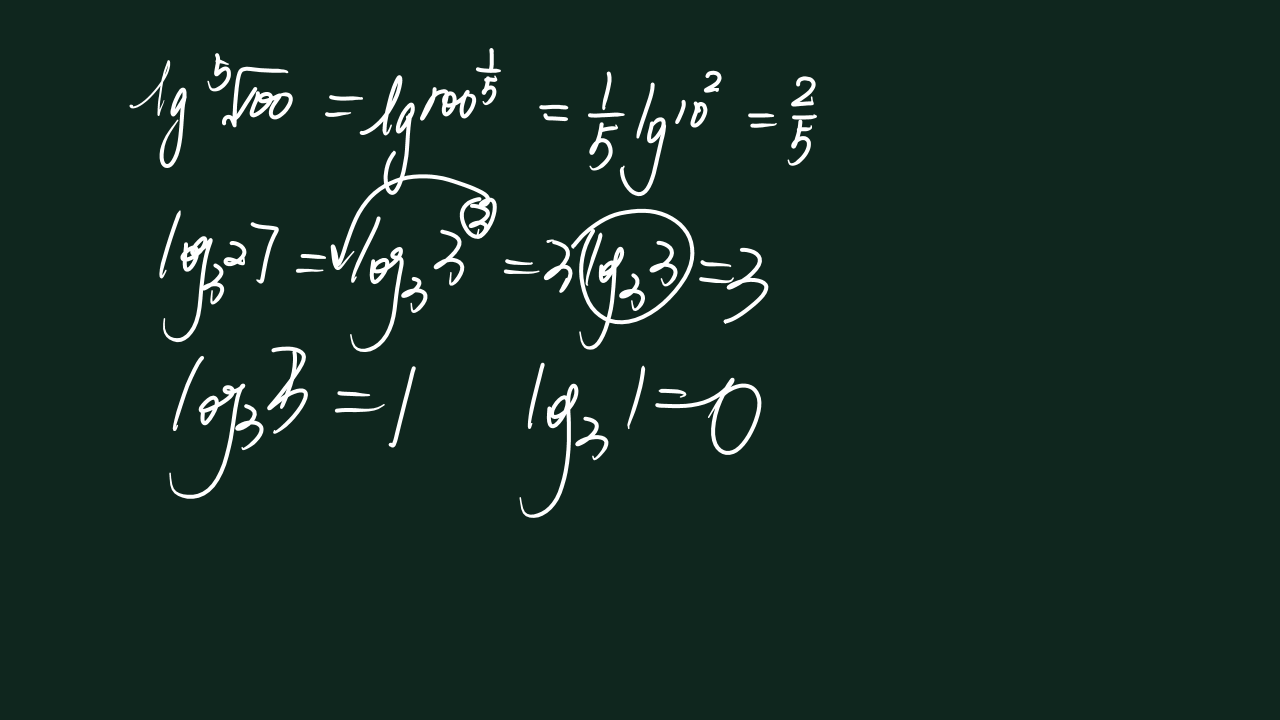 lg ⁵√100 = lg 100^(1/5) = 1/5 lg 10² = 2/5
log₃27 = log₃3³ = 3 log₃3 = 3
log₃3 = 1 log₃1 = 0